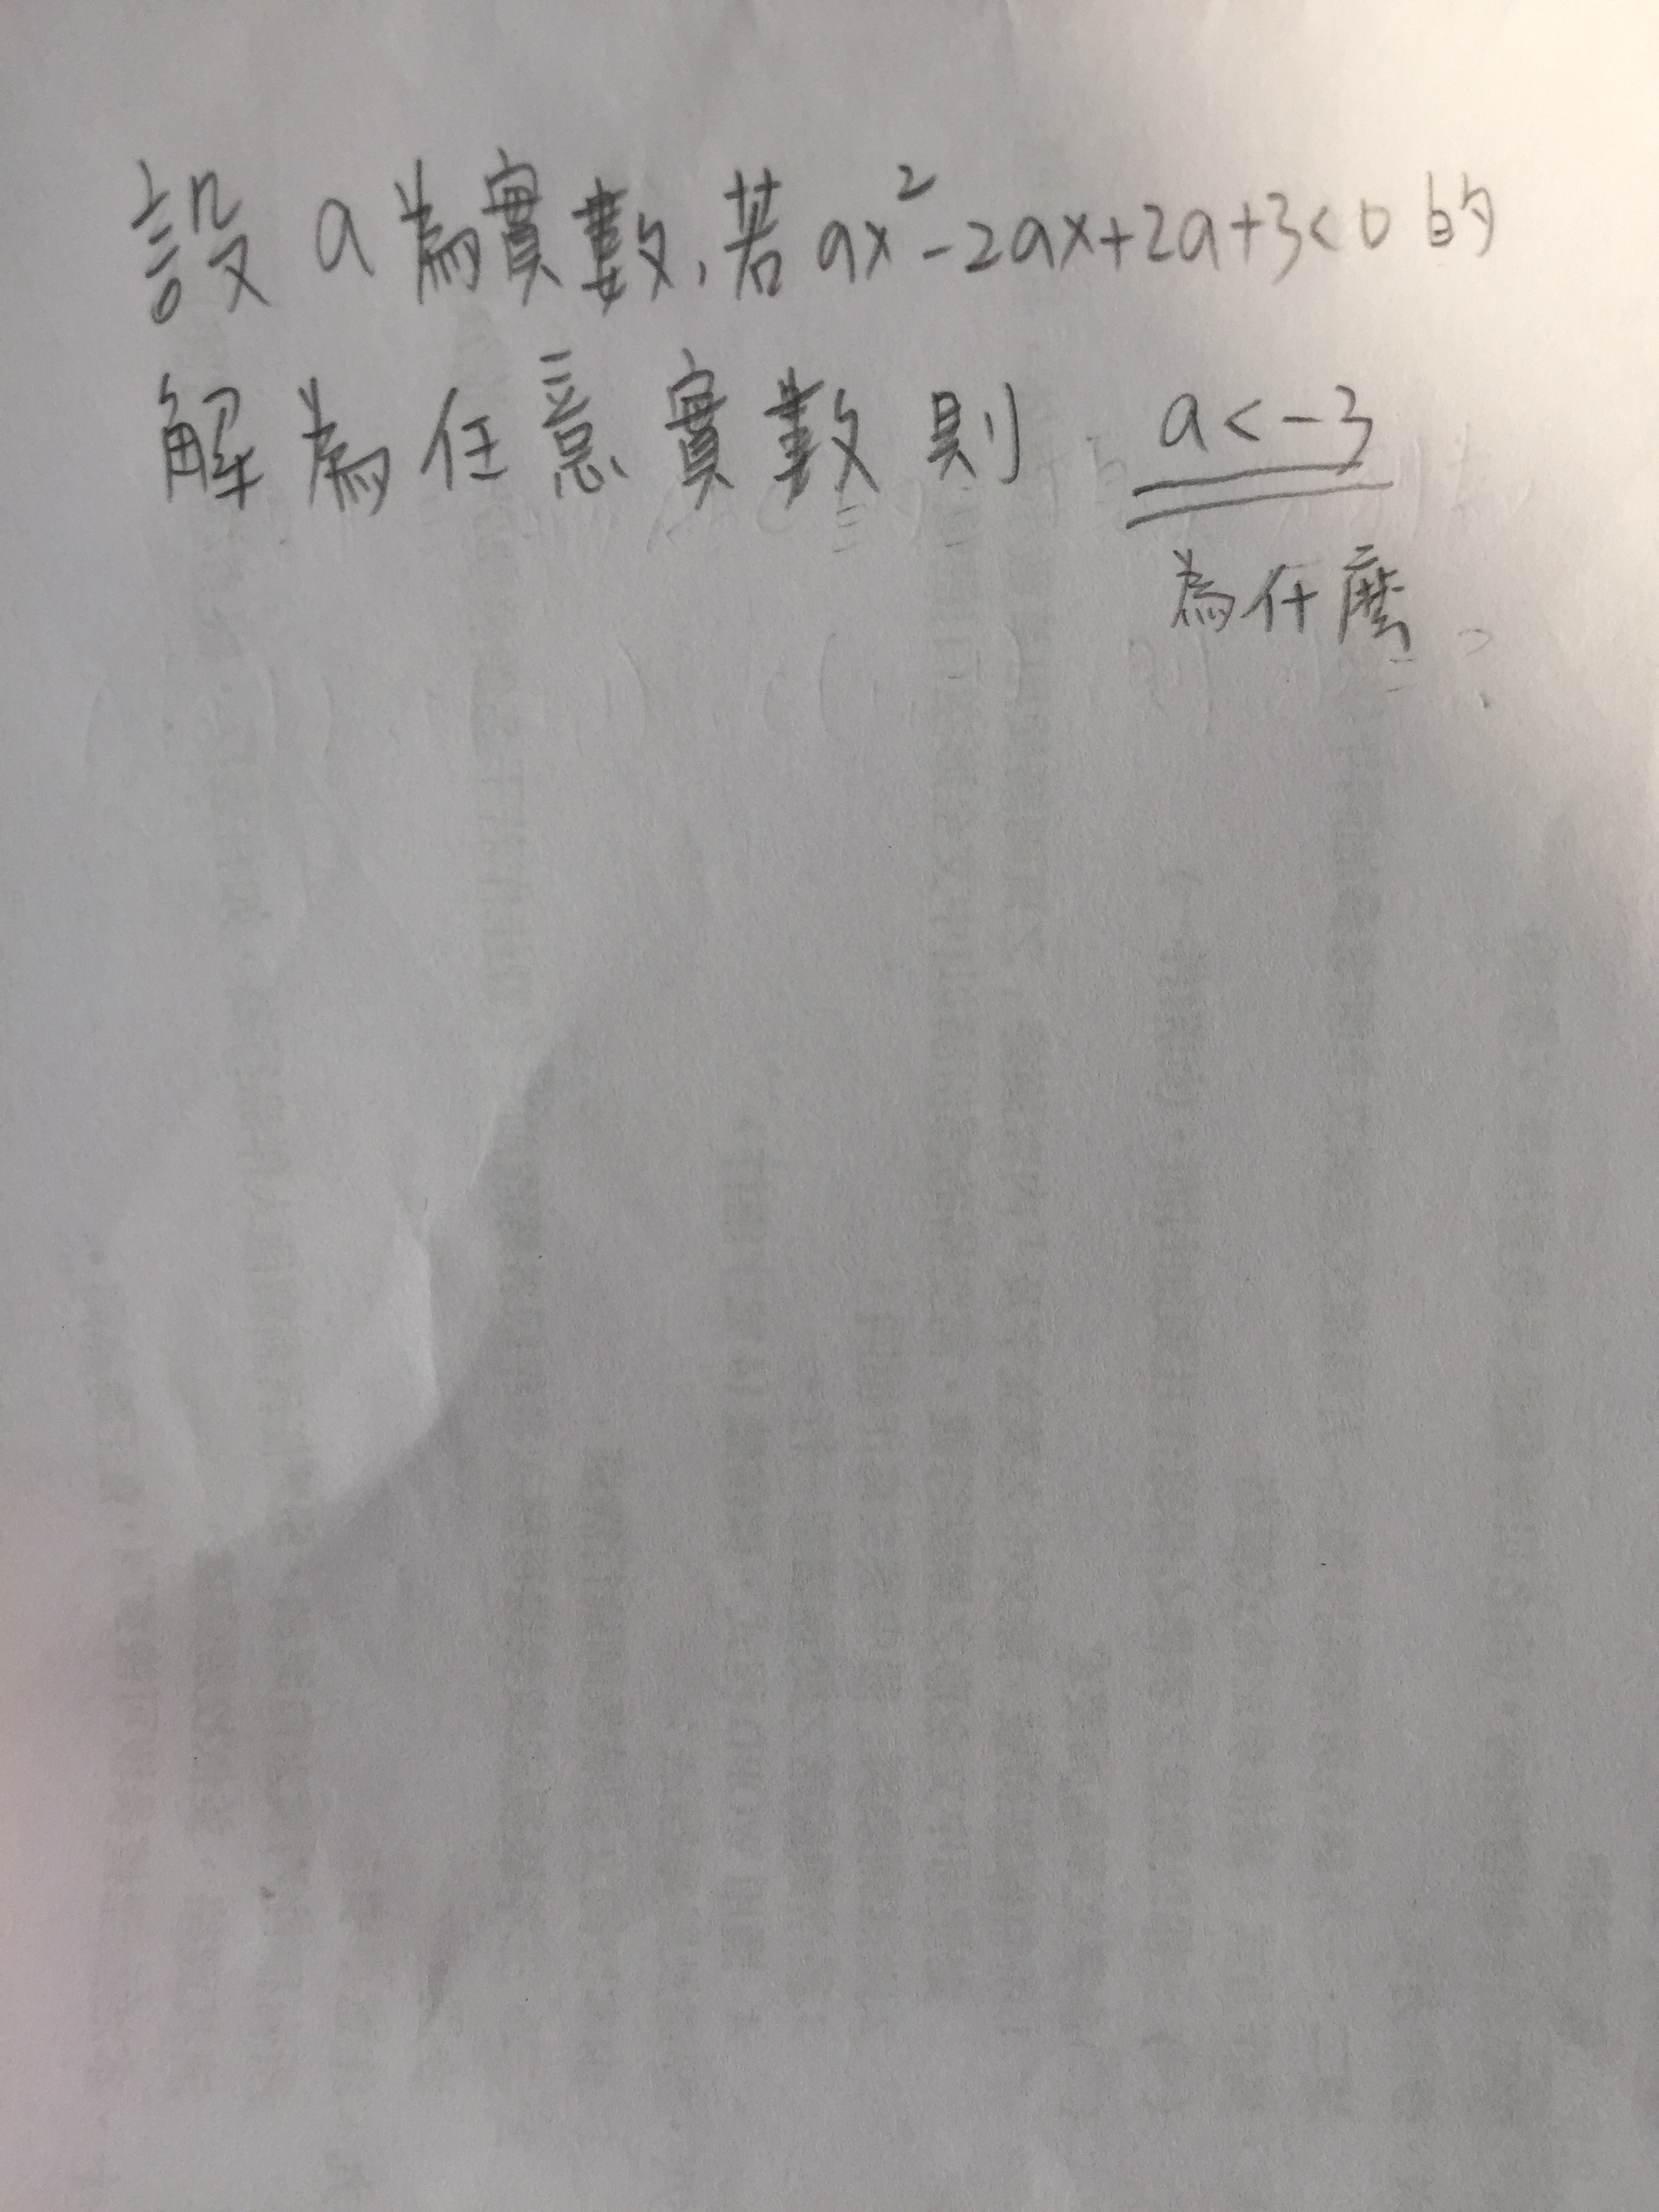 設 a 為實數, 若 ax²-2ax+2a+3<0 的
解為任意實數 則 a<-3
為什麼?